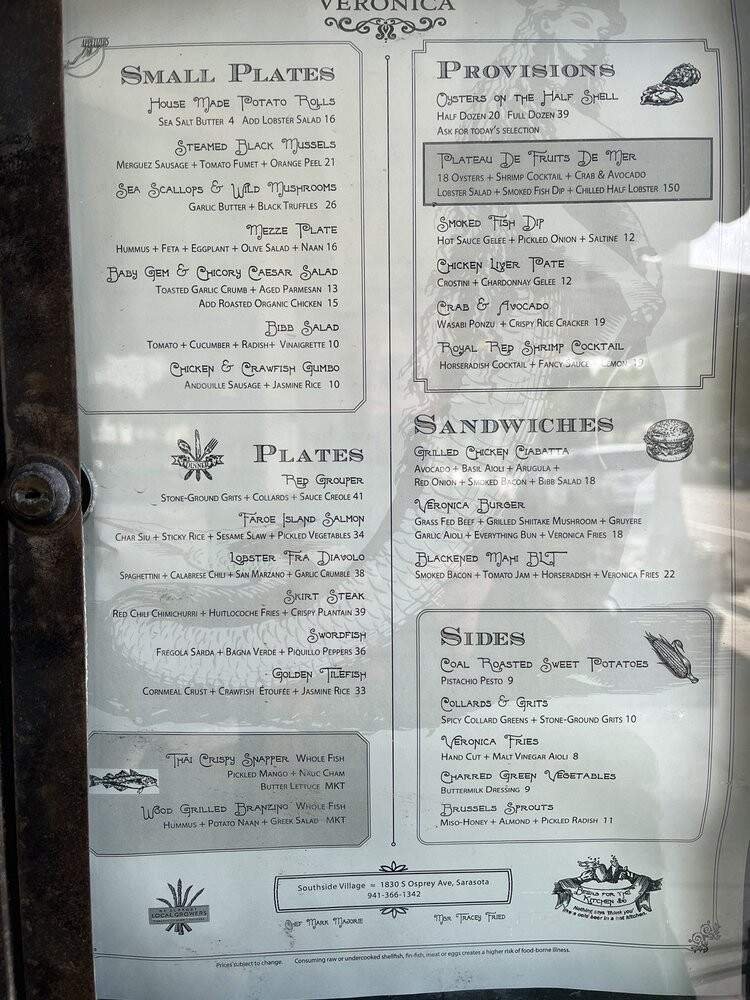 VERONICA
APPETIZERS
SMALL PLATES
HOUSE MADE POTATO ROLLS
SEA SALT BUTTER 4 ADD LOBSTER SALAD 16
STEAMED BLACK MUSSELS
MERGUEZ SAUSAGE + TOMATO FUMET + ORANGE PEEL 21
SEA SCALLOPS & WILD MUSHROOMS
GARLIC BUTTER + BLACK TRUFFLES 26
MEZZE PLATE
HUMMUS + FETA + EGGPLANT + OLIVE SALAD + NAAN 16
BABY GEM & CHICORY CAESAR SALAD
TOASTED GARLIC CRUMB + AGED PARMESAN 13
ADD ROASTED ORGANIC CHICKEN 15
BIBB SALAD
TOMATO + CUCUMBER + RADISH+ VINAIGRETTE 10
CHICKEN & CRAWFISH GUMBO
ANDOUILLE SAUSAGE + JASMINE RICE 10
DINNER
PLATES
RED GROUPER
STONE-GROUND GRITS + COLLARDS + SAUCE CREOLE 41
FAROE ISLAND SALMON
CHAR SIU + STICKY RICE + SESAME SLAW + PICKLED VEGETABLES 34
LOBSTER FRA DIAVOLO
SPAGHETTINI + CALABRESE CHILI + SAN MARZANO + GARLIC CRUMBLE 38
SKIRT STEAK
RED CHILI CHIMICHURRI + HUITLOCOCHE FRIES + CRISPY PLANTAIN 39
SWORDFISH
FREGOLA SARDA + BAGNA VERDE + PIQUILLO PEPPERS 36
GOLDEN TILEFISH
CORNMEAL CRUST + CRAWFISH ÉTOUFÉE + JASMINE RICE 33
THAI CRISPY SNAPPER WHOLE FISH
PICKLED MANGO + NAUC CHAM
BUTTER LETTUCE MKT
WOOD GRILLED BRANZINO WHOLE FISH
HUMMUS + POTATO NAAN + GREEK SALAD MKT
PROVISIONS
OYSTERS ON THE HALF SHELL
HALF DOZEN 20 FULL DOZEN 39
ASK FOR TODAY'S SELECTION
PLATEAU DE FRUITS DE MER
18 OYSTERS + SHRIMP COCKTAIL + CRAB & AVOCADO
LOBSTER SALAD + SMOKED FISH DIP + CHILLED HALF LOBSTER 150
SMOKED FISH DIP
HOT SAUCE GELEE + PICKLED ONION + SALTINE 12
CHICKEN LIVER PATE
CROSTINI + CHARDONNAY GELEE 12
CRAB & AVOCADO
WASABI PONZU + CRISPY RICE CRACKER 19
ROYAL RED SHRIMP COCKTAIL
HORSERADISH COCKTAIL + FANCY SAUCE + LEMON
SANDWICHES
GRILLED CHICKEN CIABATTA
AVOCADO + BASIL AIOLI + ARUGULA +
RED ONION + SMOKED BACON + BIBB SALAD 18
VERONICA BURGER
GRASS FED BEEF + GRILLED SHIITAKE MUSHROOM + GRUYERE
GARLIC AIOLI + EVERYTHING BUN + VERONICA FRIES 18
BLACKENED MAHI BLT
SMOKED BACON + TOMATO JAM + HORSERADISH + VERONICA FRIES 22
SIDES
COAL ROASTED SWEET POTATOES
PISTACHIO PESTO 9
COLLARDS & GRITS
SPICY COLLARD GREENS + STONE-GROUND GRITS 10
VERONICA FRIES
HAND CUT + MALT VINEGAR AIOLI 8
CHARRED GREEN VEGETABLES
BUTTERMILK DRESSING 9
BRUSSELS SPROUTS
MISO-HONEY + ALMOND + PICKLED RADISH 11
WE SUPPORT
LOCAL GROWERS
Southside Village ≈ 1830 S Osprey Ave, Sarasota
941-366-1342
CHEF MARK MAJORIE MGR TRACEY FRIED
BEERS FOR THE
KITCHEN $6
Nothing says 'thank you'
like a cold beer in a hot kitchen
Prices subject to change. Consuming raw or undercooked shellfish, fin-fish, meat or eggs creates a higher risk of food-borne illness.